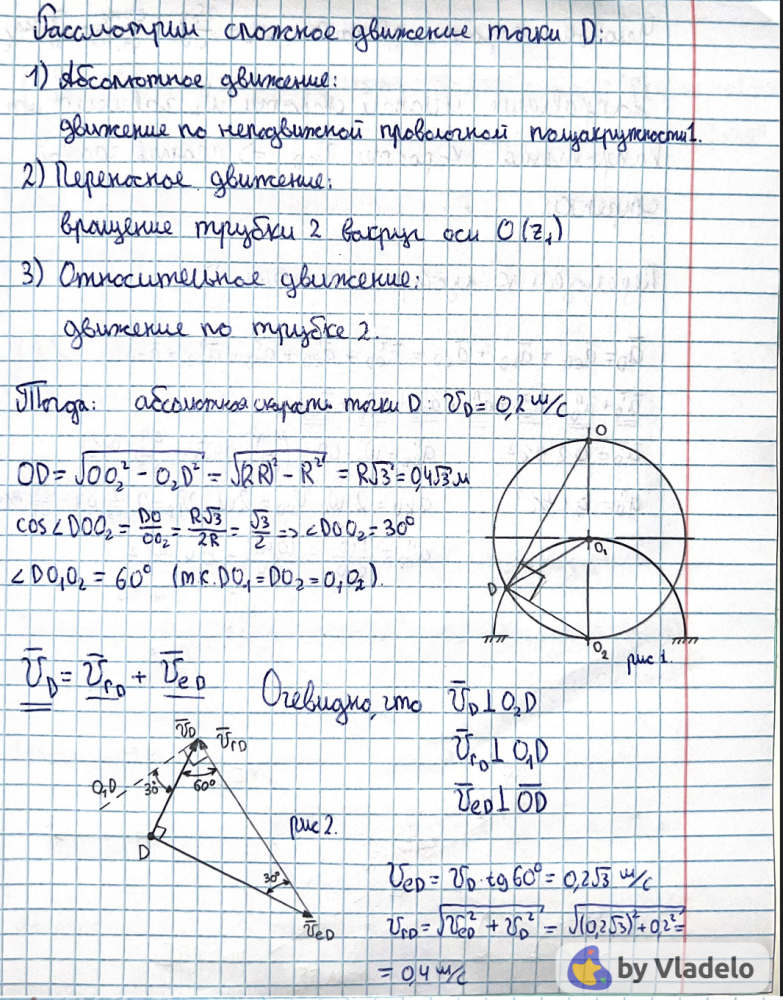 Рассмотрим сложное движение точки D:
1) Абсолютное движение:
движение по неподвижной проволочной полуокружности 1.
2) Переносное движение:
вращение трубки 2 вокруг оси O(z₁)
3) Относительное движение:
движение по трубке 2.
Тогда: абсолютная скорость точки D: V_D = 0,2 м/с
OD = √(OO₂² - O₂D²) = √((2R)² - R²) = R√3 = 0,4√3 м
cos∠DOO₂ = DO/OO₂ = R√3/2R = √3/2 => ∠DOO₂ = 30°
∠DO₁O₂ = 60° (т.к. DO₁ = DO₂ = O₁O₂).
O
O₁
D
O₂
рис 1.
V̄_D = V̄_rD + V̄_eD
Очевидно, что V̄_D ⊥ O₂D
V̄_rD ⊥ O₁D
V̄_eD ⊥ O̅D̅
V̄_D V̄_rD
O₁D 30° 60°
рис 2.
D
30°
V̄_eD
V_eD = V_D · tg 60° = 0,2√3 м/с
V_rD = √(V_eD² + V_D²) = √((0,2√3)² + 0,2²) =
= 0,4 м/с
by Vladelo